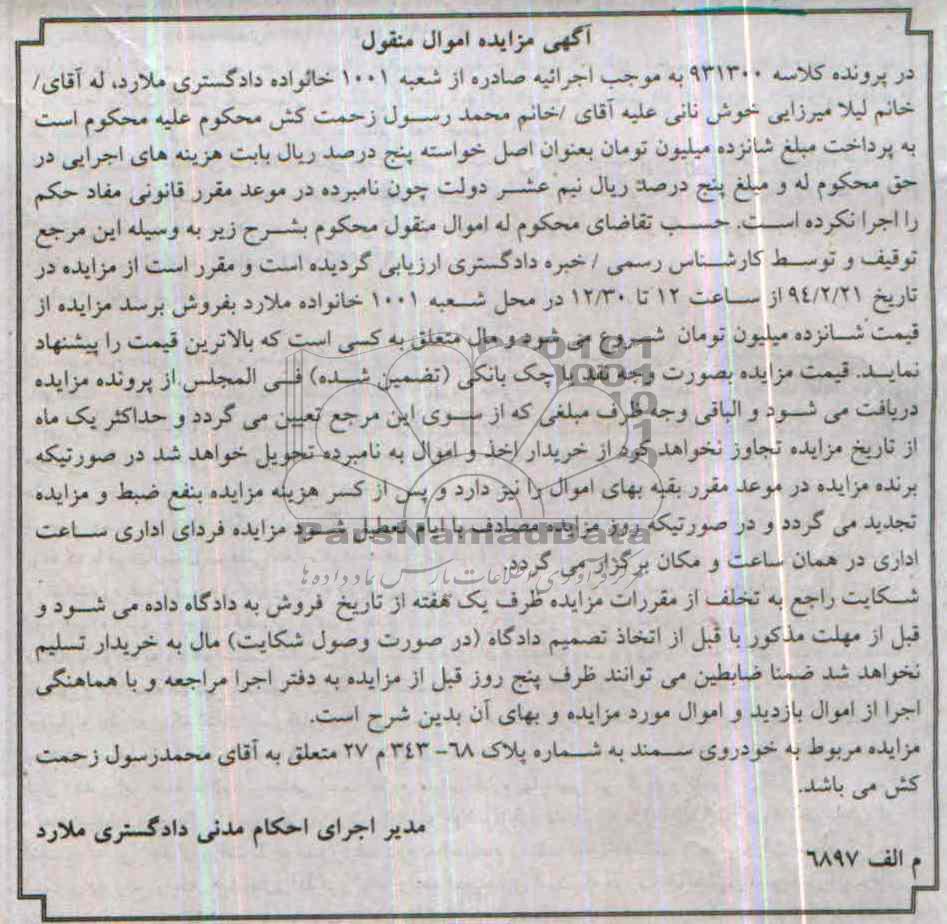 آگهی مزایده اموال منقول
در پرونده کلاسه ۹۳۱۳۰۰ به موجب اجرائیه صادره از شعبه ۱۰۰۱ خانواده دادگستری ملارد، له آقای/
خانم لیلا میرزایی خوش نانی علیه آقای /خانم محمد رسول زحمت کش محکوم علیه محکوم است
به پرداخت مبلغ شانزده میلیون تومان بعنوان اصل خواسته پنج درصد ریال بابت هزینه های اجرایی در
حق محکوم له و مبلغ پنج درصد ریال نیم عشر دولت چون نامبرده در موعد مقرر قانونی مفاد حکم
را اجرا نکرده است. حسب تقاضای محکوم له اموال منقول محکوم بشرح زیر به وسیله این مرجع
توقیف و توسط کارشناس رسمی / خبره دادگستری ارزیابی گردیده است و مقرر است از مزایده در
تاریخ ۹٤/۲/۲۱ از ساعت ۱۲ تا ۱۲/۳۰ در محل شعبه ۱۰۰۱ خانواده ملارد بفروش برسد مزایده از
قیمت شانزده میلیون تومان شروع می شود و مال متعلق به کسی است که بالاترین قیمت را پیشنهاد
نماید. قیمت مزایده بصورت وجه نقد یا چک بانکی (تضمین شده) فی المجلس از پرونده مزایده
دریافت می شود و الباقی وجه ظرف مبلغی که از سوی این مرجع تعیین می گردد و حداکثر یک ماه
از تاریخ مزایده تجاوز نخواهد کرد از خریدار اخذ و اموال به نامبرده تحویل خواهد شد در صورتیکه
برنده مزایده در موعد مقرر بقیه بهای اموال را نیز دارد و پس از کسر هزینه مزایده بنفع ضبط و مزایده
تجدید می گردد و در صورتیکه روز مزایده مصادف با ایام تعطیل شود مزایده فردای اداری ساعت
اداری در همان ساعت و مکان برگزار می گردد.
شکایت راجع به تخلف از مقررات مزایده ظرف یک هفته از تاریخ فروش به دادگاه داده می شود و
قبل از مهلت مذکور با قبل از اتخاذ تصمیم دادگاه (در صورت وصول شکایت) مال به خریدار تسلیم
نخواهد شد ضمنا ضابطین می توانند ظرف پنج روز قبل از مزایده به دفتر اجرا مراجعه و با هماهنگی
اجرا از اموال بازدید و اموال مورد مزایده و بهای آن بدین شرح است.
مزایده مربوط به خودروی سمند به شماره پلاک ۶۸- ۳٤۳ م ۲۷ متعلق به آقای محمدرسول زحمت
کش می باشد.
مدیر اجرای احکام مدنی دادگستری ملارد
م الف ٦٨٩٧
ParsNamadData